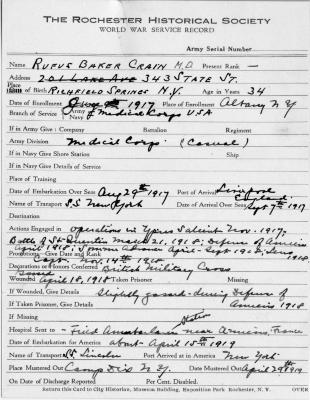 THE ROCHESTER HISTORICAL SOCIETY
WORLD WAR SERVICE RECORD
Army Serial Number
Name RUFUS BAKER CRAIN M.D. Present Rank -
Address 201 LAKE AVE 343 STATE ST.
Place of Birth RICHFIELD SPRINGS N.Y. Age in Years 34
Date of Enrollment 1917 Place of Enrollment Albany N Y
Branch of Service Army Navy Medical Corps USA
If in Army Give: Company Battalion Regiment
Army Division Medical Corps (Casual)
If in Navy Give Shore Station Ship
If in Navy Give Details of Service
Place of Training
Date of Embarkation Over Seas Aug 29th 1917 Port of Arrival Liverpool England
Name of Transport SS New York Date of Arrival Over Seas Sept 7th 1917
Destination
Actions Engaged in operations in Ypres Salient Nov. 1917,
Battle of St. Quentin March 21, 1918; Defense of Amiens
April 1918; Somme 1918,
Promotions - Give Date and Rank
Capt. Nov. 14th 1918
Decorations or Honors Conferred British Military Cross
Gassed
Wounded April 18, 1918 Taken Prisoner Missing
If Wounded, Give Details Slightly gassed - during Defense of
If Taken Prisoner, Give Details Amiens 1918
If Missing
Hospital Sent to - Field Ambulance Station near Amiens, France
Date of Embarkation for America about April 15th 1919
Name of Transport SS Lincoln Port Arrived at in America New York
Place Mustered Out Camp Dix N. Y. Date Mustered Out April 29th 1919
On Date of Discharge Reported Per Cent. Disabled.
Return this Card to City Historian, Museum Building, Exposition Park Rochester, N. Y. OVER